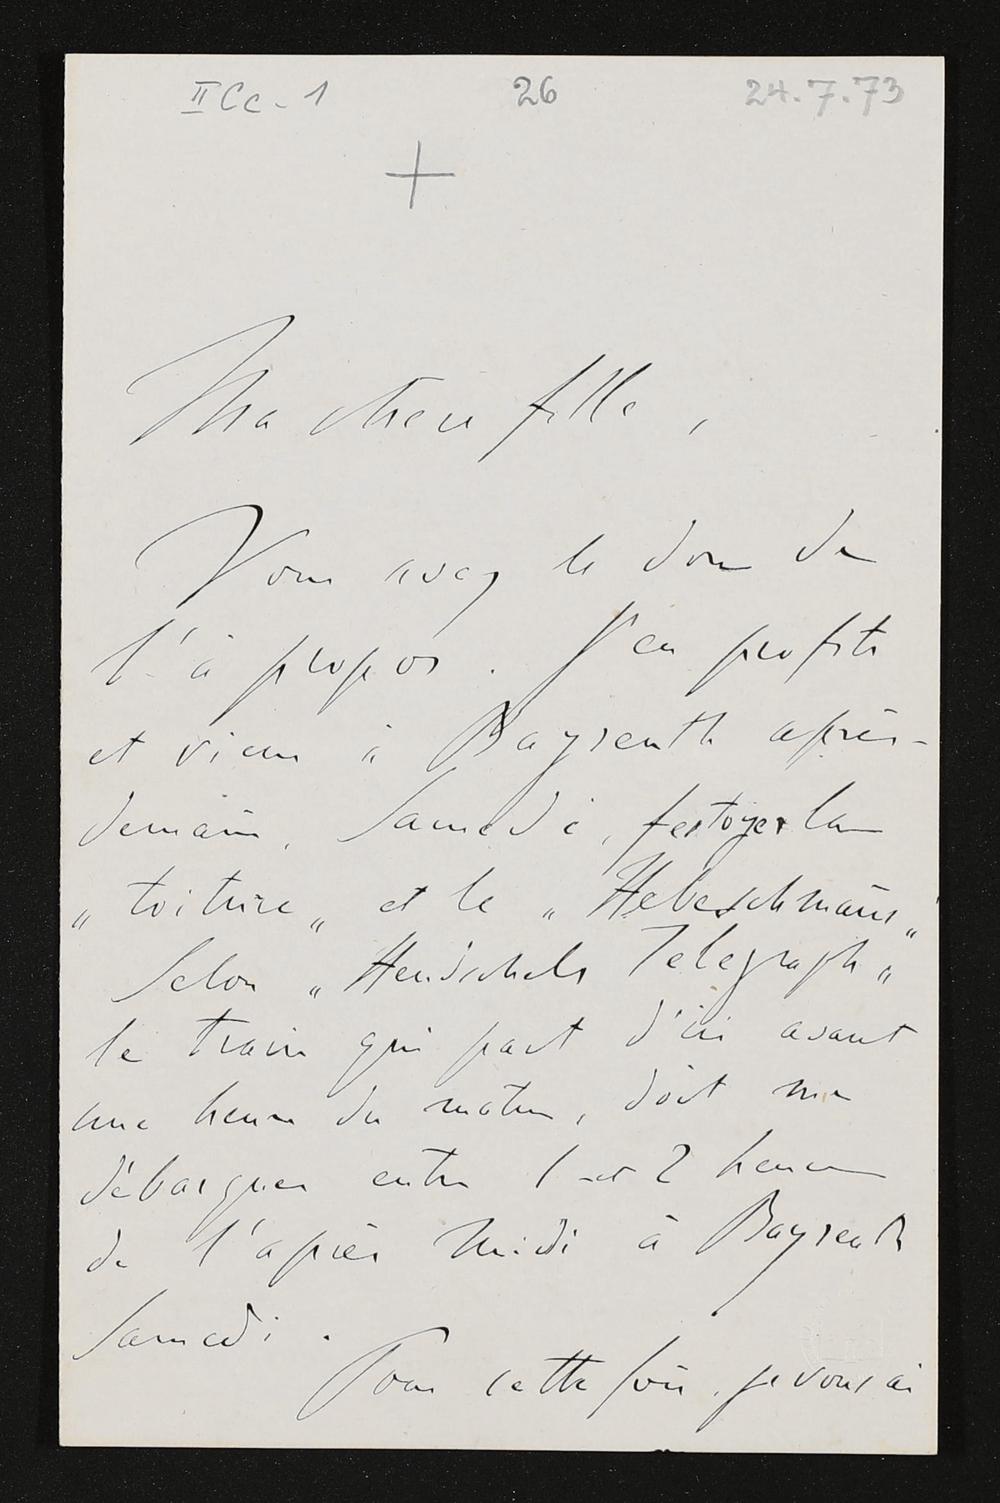 II Cc - 1 26 24.7.73
+
Ma chere fille,
Vous avez le don de
l'à propos. J'en profite
et viens à Bayreuth après-
demain, Samedi, festoyer la
„toiture„ et le „Hebeschmaus„
Selon „Hendschels Telegraph„
le train qui part d'ici avant
une heure du matin, doit me
débarquer entre 1 et 2 heures
de l'après midi à Bayreuth
Samedi.
Pour cette fois, je vous ai